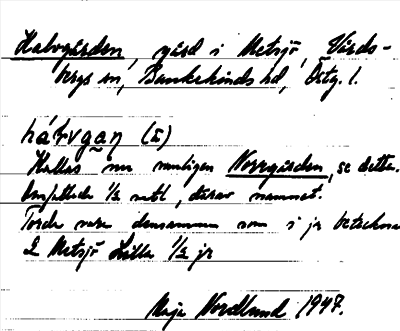 Halvgården, gård i Metsjö, Vårds-
bergs sn, Bankekinds hd, Östg. l.
hálvgaṇ (I)
Kallas nu vanligen Norrgården, se detta.
Omfattade 1/2 mtl, därav namnet.
Torde vara densamma som i jr betecknas
2 Metsjö Lilla 1/2 jr
Maja Nordlund 1947.